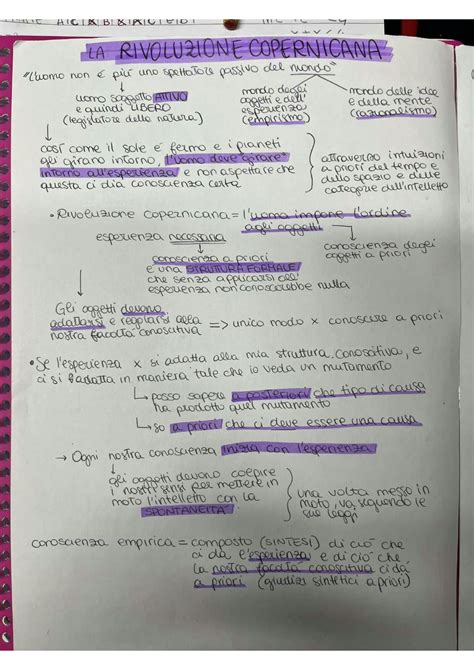 LA RIVOLUZIONE COPERNICANA
"L'uomo non è più uno spettatore passivo del mondo"
uomo soggetto ATTIVO
e quindi LIBERO
(legislatore della natura)
mondo degli
oggetti e dell'
esperienza
(empirismo)
mondo delle idee
e della mente
(razionalismo)
così come il sole è fermo e i pianeti
gli girano intorno, l'uomo deve girare
intorno all'esperienza e non aspettare che
questa ci dia conoscenza certa
attraverso intuizioni
a priori del tempo e
dello spazio e delle
categorie dell'intelletto
• Rivoluzione copernicana = l'uomo impone l'ordine
agli oggetti
esperienza necessaria
conoscenza degli
oggetti a priori
conoscenza a priori
è una STRUTTURA FORMALE
che senza applicarsi all'
esperienza non conoscerebbe nulla
Gli oggetti devono
adattarsi e regolarsi alla
nostra facoltà conoscitiva
=> unico modo x conoscere a priori
• Se l'esperienza x si adatta alla mia struttura conoscitiva, e
ci si adatta in maniera tale che io veda un mutamento
↳ posso sapere a posteriori che tipo di causa
ha prodotto quel mutamento
↳ so a priori che ci deve essere una causa
→ Ogni nostra conoscenza inizia con l'esperienza
gli oggetti devono colpire
i nostri sensi per mettere in
moto l'intelletto con la
SPONTANEITÀ
una volta messo in
moto, va, seguendo le
sue leggi
conoscenza empirica = composto (SINTESI) di ciò che
ci dà l'esperienza e di ciò che
la nostra facoltà conoscitiva ci dà
a priori (giudizi sintetici a priori)